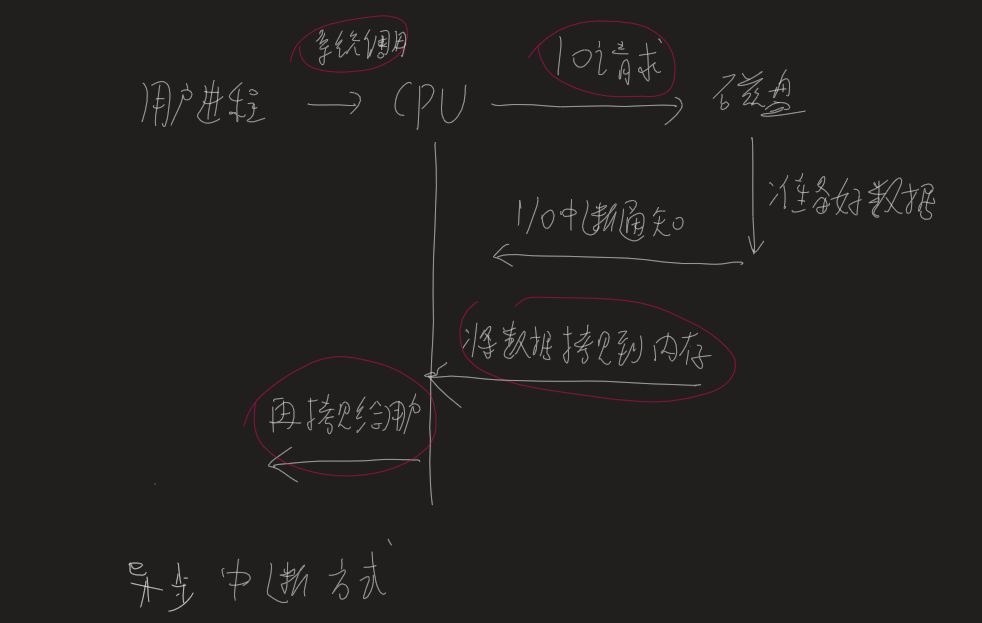 系统调用
IO请求
用户进程
CPU
磁盘
准备好数据
I/O中断通知
将数据拷贝到内存
再拷贝给用户
异步中断方式